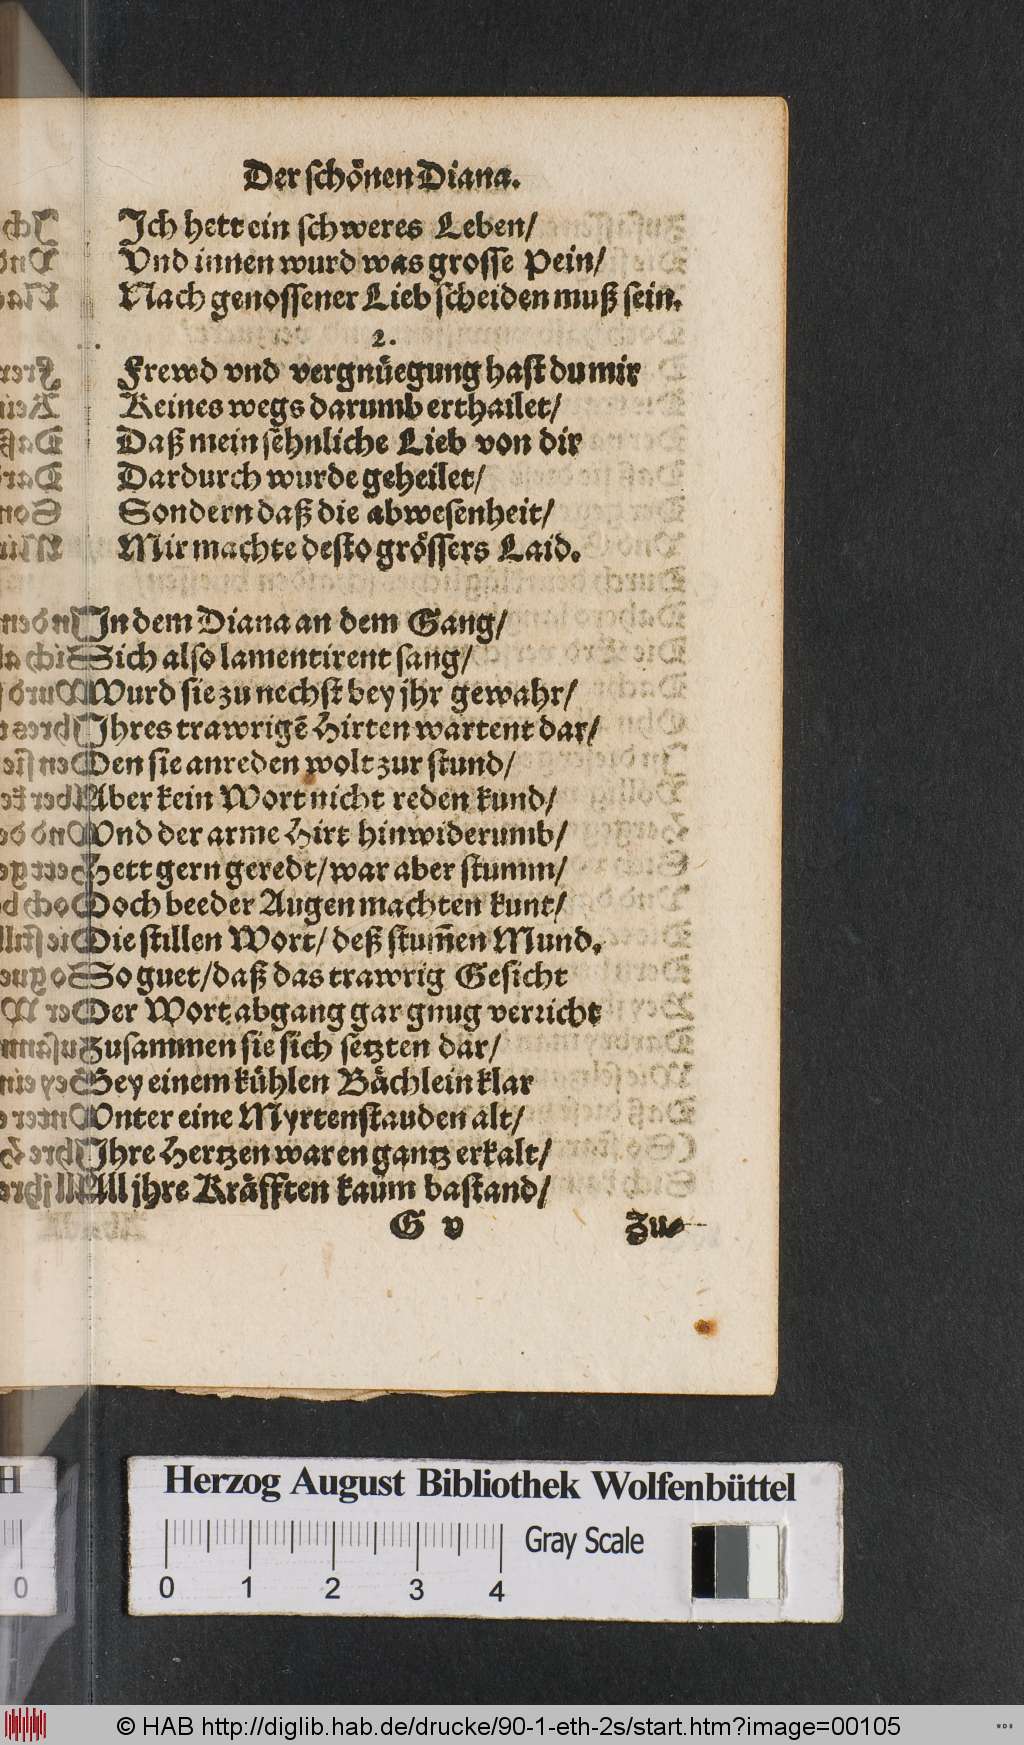 Der schönen Diana.
Ich hett ein schweres Leben/
Vnd innen wurd was grosse Pein/
Nach genossener Lieb scheiden muß sein.
2.
Frewd vnd vergnüegung hast du mir
Keines wegs darumb erthailet/
Daß mein sẽhnliche Lieb von dir
Dardurch wurde geheilet/
Sondern daß die abwesenheit/
Mir machte desto grössers Laid.
In dem Diana an dem Gang/
Sich also lamentirent sang/
Wurd sie zu nechst bey jhr gewahr/
Ihres trawrigẽ Hirten wartent dar/
Den sie anreden wolt zur stund/
Aber kein Wort nicht reden kund/
Vnd der arme Hirt hinwiderumb/
Hett gern geredt/ war aber stumm/
Doch beeder Augen machten kunt/
Die stillen Wort/ deß stum̃en Mund.
So guet/ daß das trawrig Gesicht
Der Wort abgang gar gnug verricht
Zusammen sie sich setzten dar/
Bey einem kühlen Bächlein klar
Vnter eine Myrtenstauden alt/
Ihre Hertzen waren gantz erkalt/
All jhre Kräfften kaum bastand/
G v
Zu-
Herzog August Bibliothek Wolfenbüttel
0 1 2 3 4
Gray Scale
H
0
© HAB http://diglib.hab.de/drucke/90-1-eth-2s/start.htm?image=00105